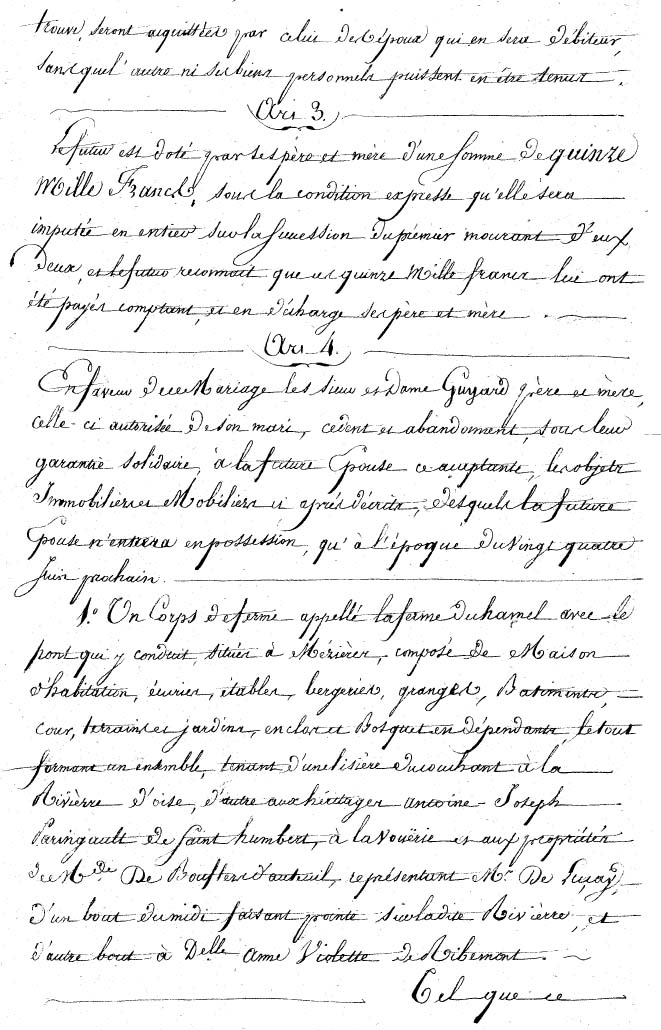 trouve, seront acquittées par celui des époux qui en sera débiteur,
sans que l'autre ni ses biens personnels puissent en être tenus.
Art 3.
Le futur est doté par ses père et mère d'une somme de quinze
Mille Francs, sous la condition expresse qu'elle sera
imputée en entier sur la succession du prémier mourant d'eux
deux, et le futur reconnait que ces quinze Mille francs lui ont
été payés comptant, et en décharge ses père et mère.
Art 4.
En faveur de ce Mariage les sieur et Dame Guyard père et mère,
celle-ci autorisée de son mari, cèdent et abandonnent, sous leur
garantie solidaire, à la future Epouse ce acceptante, les objets
Immobiliers et Mobiliers ci après décrits, desquels la future
Epouse n'entrera en possession, qu'à l'époque du vingt quatre
Juin prochain.
1.º Un Corps de ferme appellé la ferme Duhamel avec le
pont qui y conduit, situés à Mézières, composé de Maison
d'habitation, écuries, étables, bergeries, granges, Batiments,
cour, terrains et jardins, enclos et Bosquet en dépendants, le tout
formant un ensemble, tenant d'une lisière du couchant à la
Rivièrre d'oise, d'autre aux héritages antoine-Joseph
Paringault de Saint humbert, à la vouërie et aux propriétés
de Mde De Bouflers d'auteuil, représentant Mr De
d'un bout du midi faisant pointe sur ladite Rivièrre, et
d'autre bout à Delle Anne Violette de Ribemont.
Tel que ce